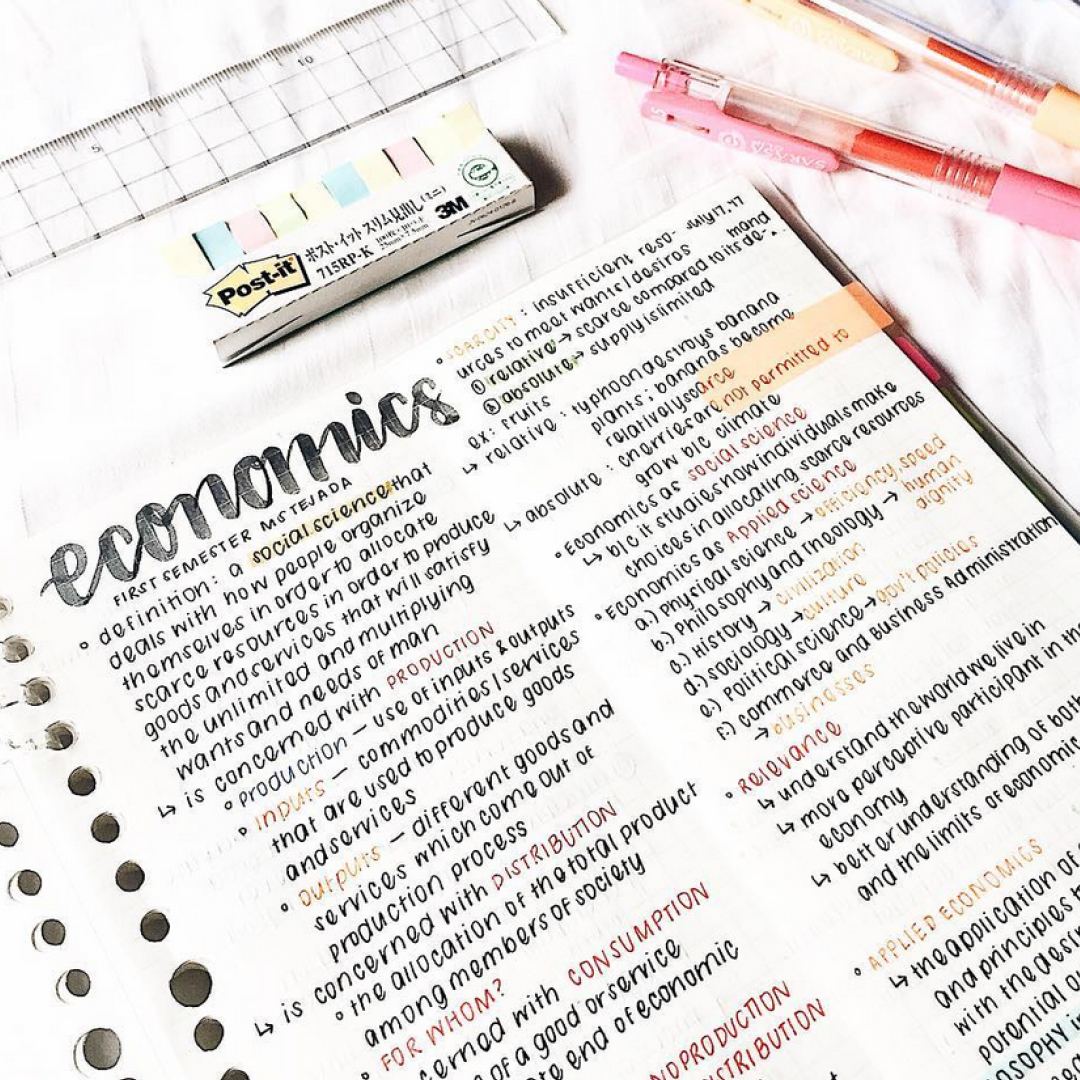 5
10
ポスト・イット スリム見出し(ミニ)
Post-it
715RP-K
3M
25mm×7.5mm
SARASA
July 17, '17
economics
FIRST SEMESTER MS TEJADA
° definition: a social science that
deals with how people organize
themselves in order to allocate
scarce resources in order to produce
goods and services that will satisfy
the unlimited and multiplying
wants and needs of man
↳ is concerned with PRODUCTION
° production — use of inputs & outputs
° INPUTS — commodities / services
that are used to produce goods
and services
° OUTPUTS — different goods and
services which come out of
production process
↳ is concerned with DISTRIBUTION
° the allocation of the total product
among members of society
° FOR WHOM?
↳ is concerned with CONSUMPTION
of a good or service
end of economic
PRODUCTION
DISTRIBUTION
° SCARCITY : insufficient reso-
urces to meet wants / desires
① relative → scarce compared to its de-
mand
② absolute → supply is limited
ex: fruits
↳ relative : typhoon destroys banana
plants ; bananas become
relatively scarce
↳ absolute : cherries are not permitted to
grow b/c climate
° Economics as social science
↳ b/c it studies how individuals make
choices in allocating scarce resources
° Economics as Applied science
a.) Physical science → efficiency, speed
b.) Philosophy and Theology → human
dignity
c.) History → civilization
d.) sociology → culture
e.) Political science → gov't policies
f.) commerce and Business Administration
→ businesses
° Relevance
↳ understand the world we live in
↳ more perceptive participant in the
economy
↳ better understanding of both
and the limits of economic
° APPLIED ECONOMICS
↳ the application of
and principles
with the
potential